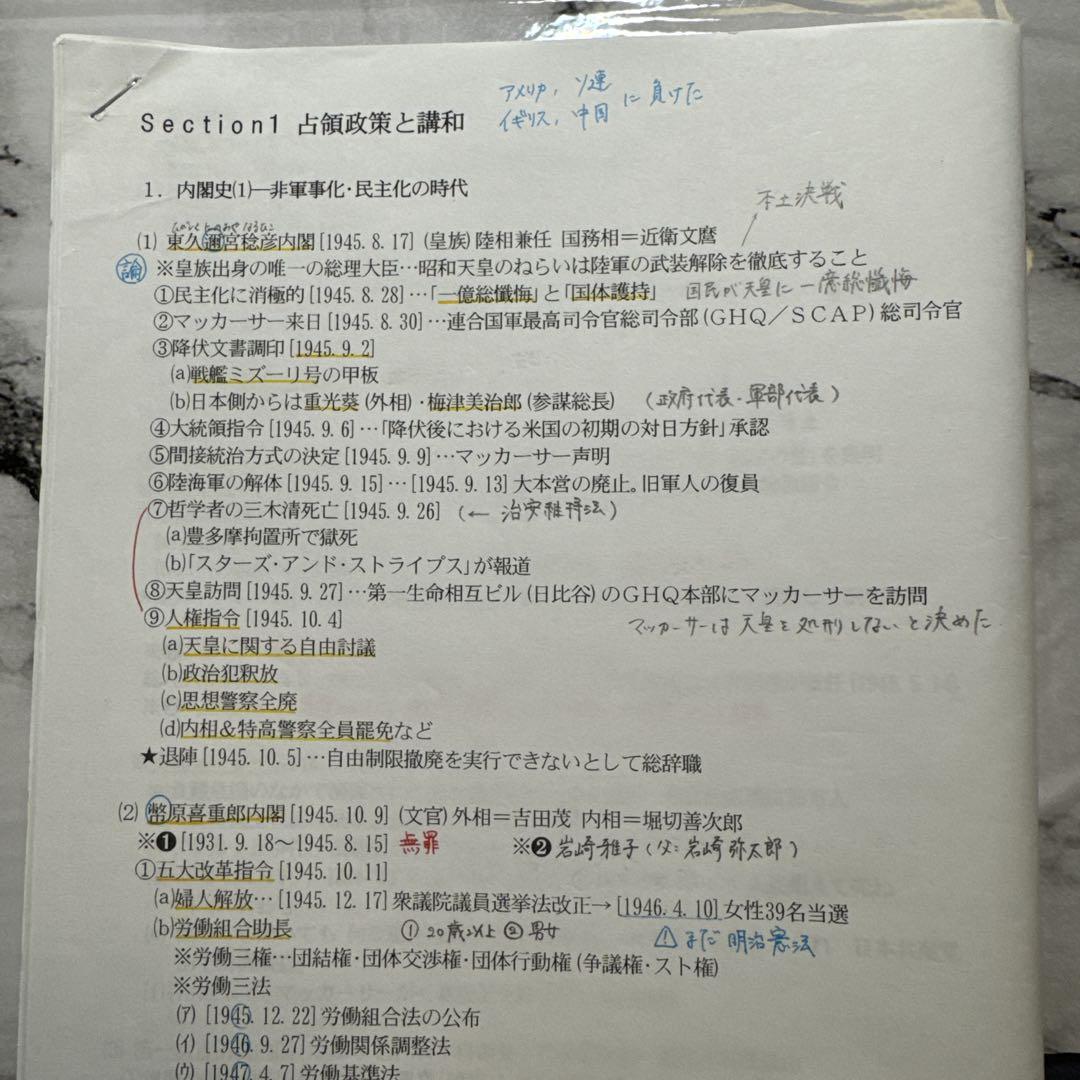 アメリカ, ソ連
イギリス, 中国 に負けた
Section1 占領政策と講和
1. 内閣史(1)―非軍事化・民主化の時代
本土決戦
ひがしくにのみやなるひこ
(1) 東久邇宮稔彦内閣[1945.8.17] (皇族)陸相兼任 国務相=近衛文麿
論 ※皇族出身の唯一の総理大臣…昭和天皇のねらいは陸軍の武装解除を徹底すること
①民主化に消極的[1945.8.28]…「一億総懺悔」と「国体護持」 国民が天皇に一億総懺悔
②マッカーサー来日[1945.8.30]…連合国軍最高司令官総司令部(GHQ/SCAP)総司令官
③降伏文書調印[1945.9.2]
(a)戦艦ミズーリ号の甲板
(b)日本側からは重光葵(外相)・梅津美治郎(参謀総長) (政府代表・軍部代表)
④大統領指令[1945.9.6]…「降伏後における米国の初期の対日方針」承認
⑤間接統治方式の決定[1945.9.9]…マッカーサー声明
⑥陸海軍の解体[1945.9.15]…[1945.9.13]大本営の廃止。旧軍人の復員
⑦哲学者の三木清死亡[1945.9.26] (← 治安維持法)
(a)豊多摩拘置所で獄死
(b)「スターズ・アンド・ストライプス」が報道
⑧天皇訪問[1945.9.27]…第一生命相互ビル(日比谷)のGHQ本部にマッカーサーを訪問
⑨人権指令[1945.10.4] マッカーサーは天皇を処刑しないと決めた
(a)天皇に関する自由討議
(b)政治犯釈放
(c)思想警察全廃
(d)内相&特高警察全員罷免など
★退陣[1945.10.5]…自由制限撤廃を実行できないとして総辞職
(2) 幣原喜重郎内閣[1945.10.9] (文官)外相=吉田茂 内相=堀切善次郎
※❶[1931.9.18〜1945.8.15] 無罪 ※❷岩崎雅子(父:岩崎弥太郎)
①五大改革指令[1945.10.11]
(a)婦人解放…[1945.12.17]衆議院議員選挙法改正→[1946.4.10]女性39名当選
(b)労働組合助長 ①20歳以上 ②男女 ⚠まだ明治憲法
※労働三権…団結権・団体交渉権・団体行動権(争議権・スト権)
※労働三法
(ア) [1945.12.22]労働組合法の公布
(イ) [1946.9.27]労働関係調整法
(ウ) [1947.4.7]労働基準法